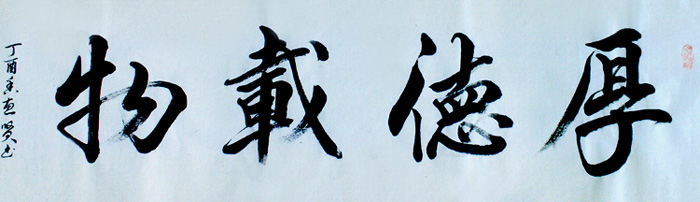 厚德載物
丁酉